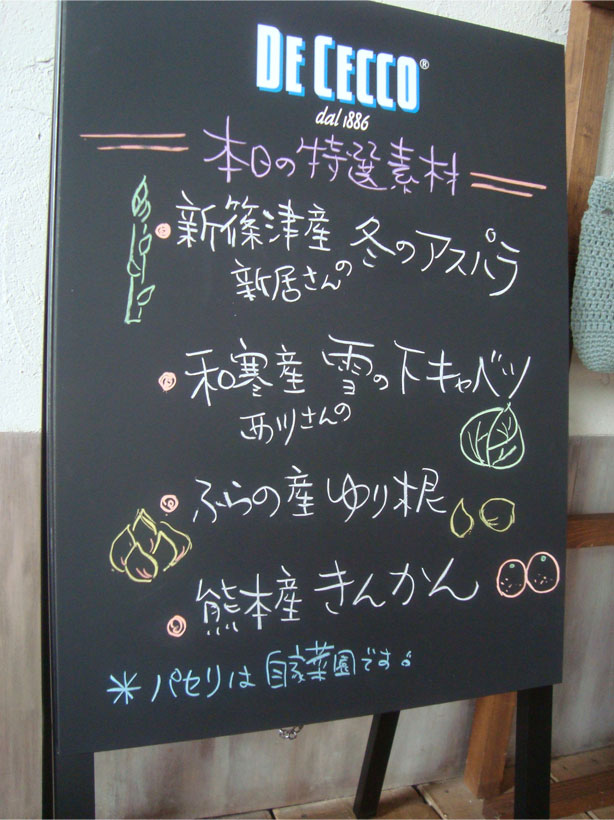 DE CECCO®
dal 1886
本日の特選素材
新篠津産 冬のアスパラ
新居さんの
和寒産 雪の下キャベツ
西川さんの
ふらの産 ゆり根
熊本産 きんかん
*パセリは自家菜園です。